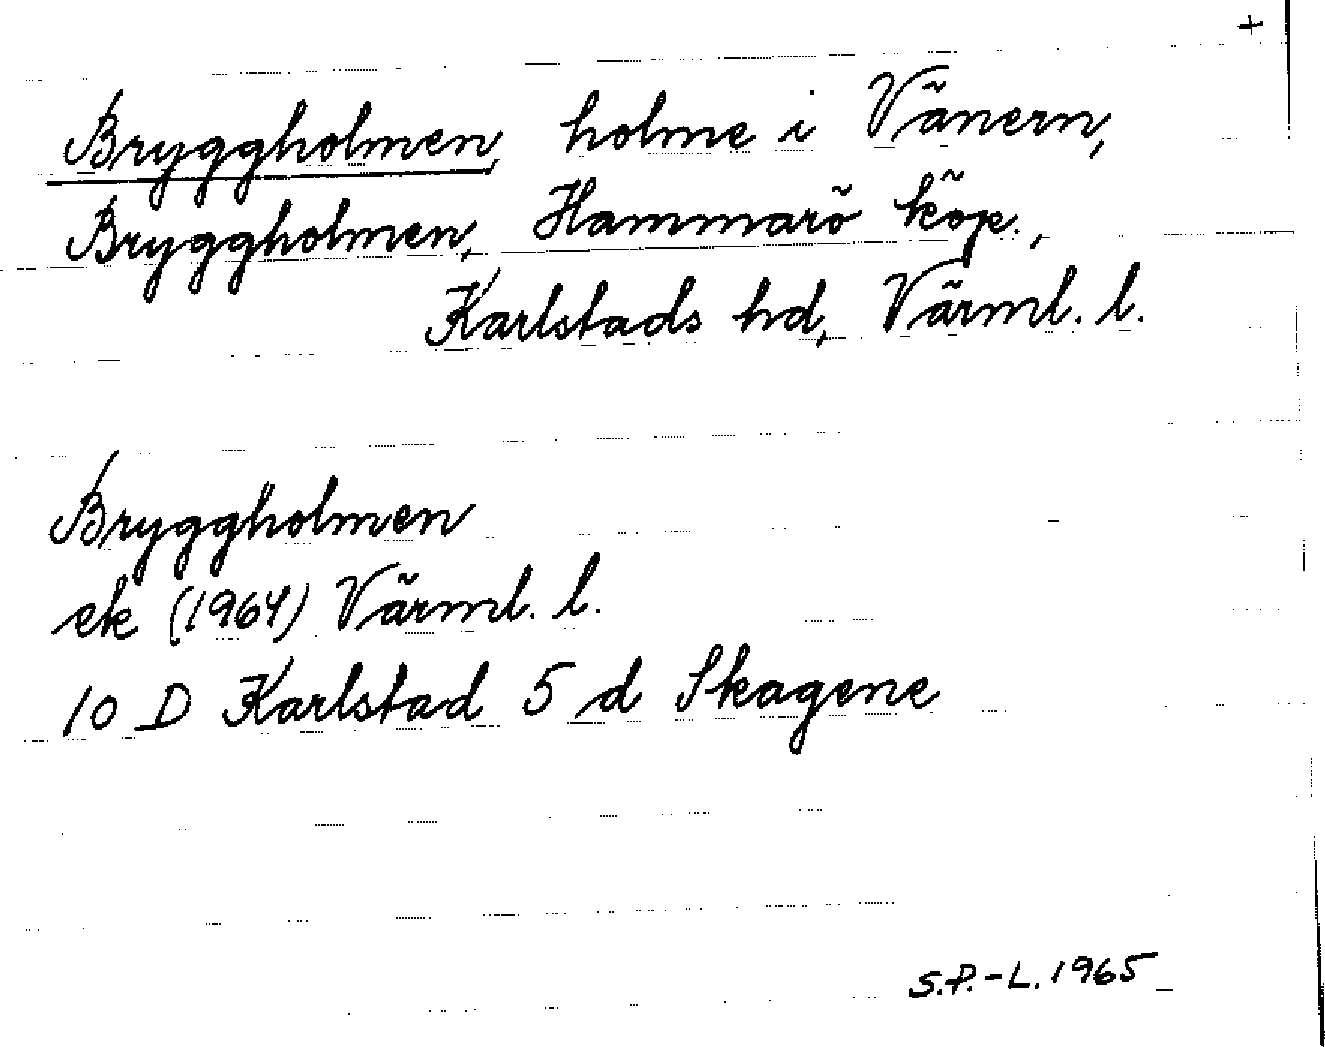 +
Bryggholmen, holme i Vänern,
Bryggholmen, Hammarö köp.,
Karlstads hd, Värml. l.
Bryggholmen
ek (1964) Värml. l.
10 D Karlstad 5 d Skagene
S.P.-L. 1965